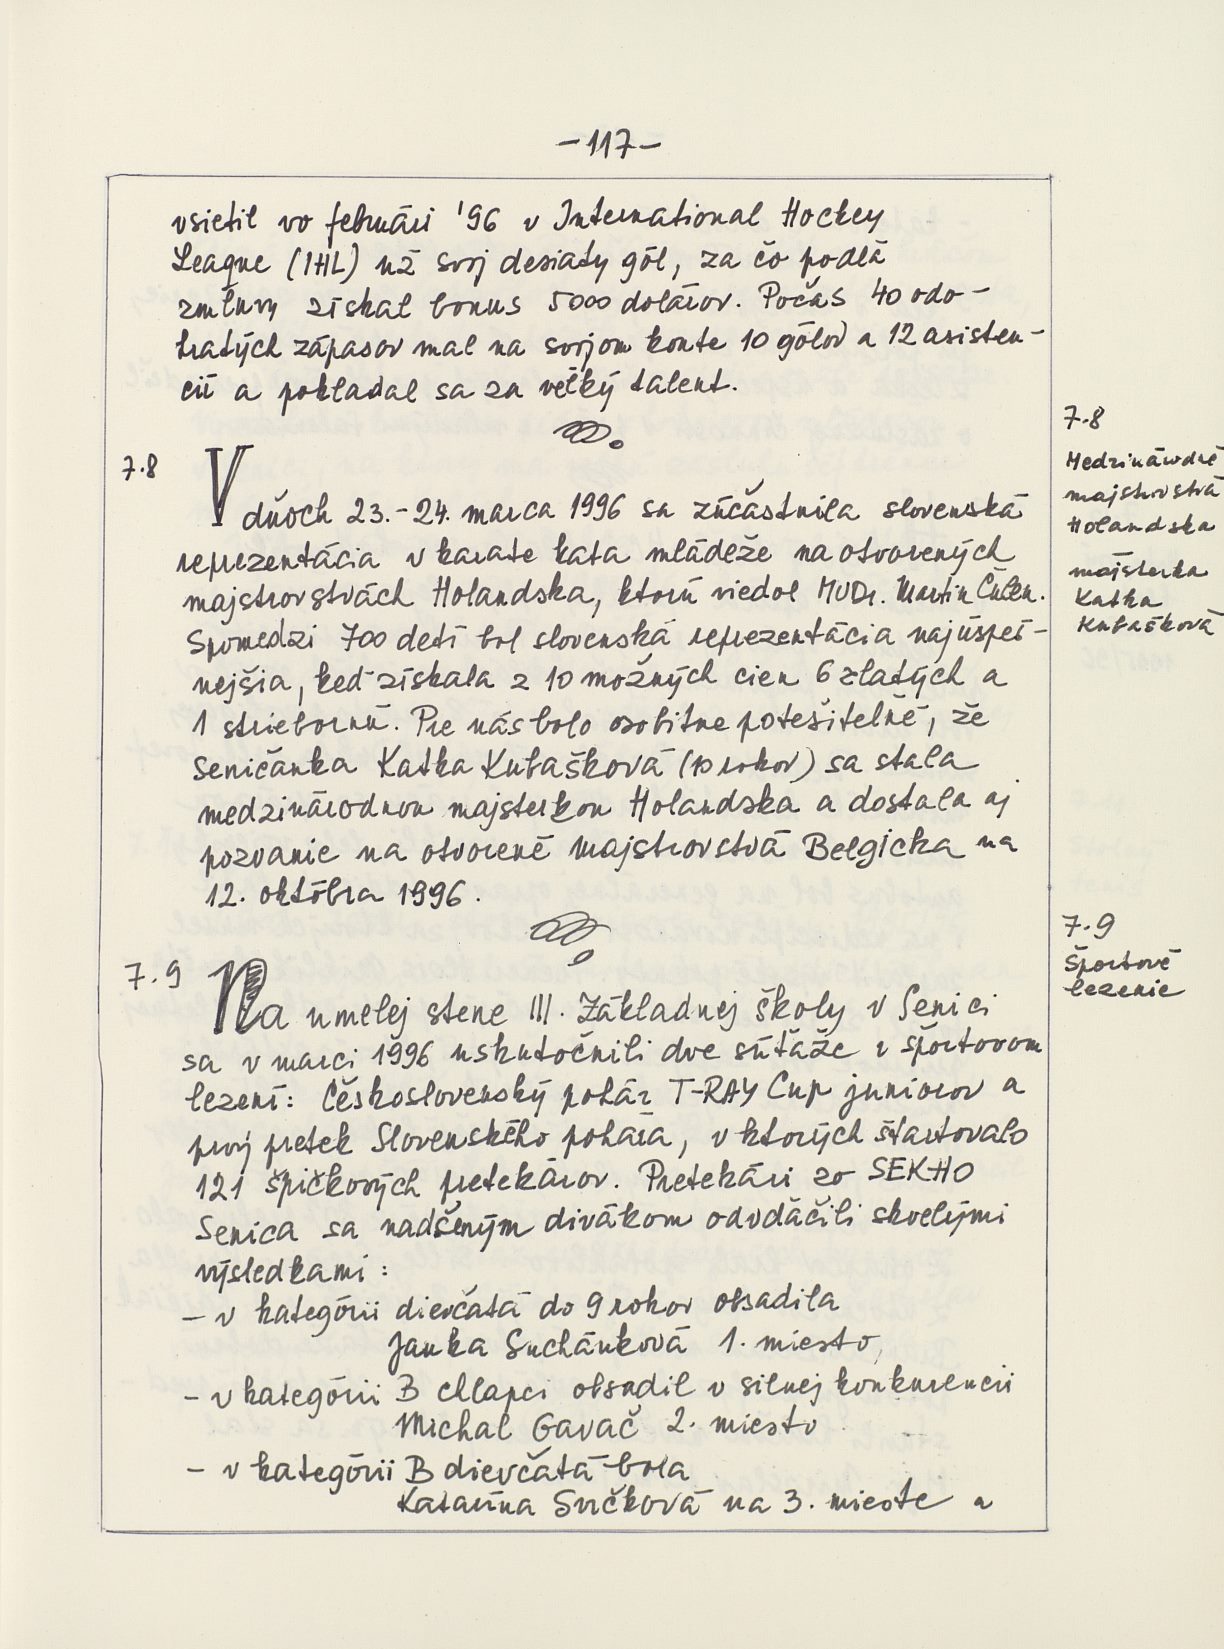 -117-
vsietil vo februári '96 v International Hockey
League (IHL) už svoj desiaty gól, za čo podľa
zmluvy získal bonus 5000 dolárov. Počas 40 odo-
hratých zápasov mal na svojom konte 10 gólov a 12 asisten-
cií a pokladal sa za veľký talent.
7.8
V dňoch 23.-24. marca 1996 sa zúčastnila slovenská
reprezentácia v karate kata mládeže na otvorených
majstrovstvách Holandska, ktorú viedol MUDr. Martin
Spomedzi 700 detí bol slovenská reprezentácia najúspeš-
nejšia, keď získala z 10 možných cien 6 zlatých a
1 striebornú. Pre nás bolo osobitne potešiteľné, že
Seničanka Katka Kubašková (10 rokov) sa stala
medzinárodnou majsterkou Holandska a dostala aj
pozvanie na otvorené majstrovstvá Belgicka na
12. októbra 1996.
7.8
Medzinárodné
majstrovstvá
Holandska
májsterka
Katka
Kubašková
7.9
Na umelej stene III. Základnej školy v Senici
sa v marci 1996 uskutočnili dve súťaže v športovom
lezení: Československý pohár T-RAY Cup juniorov a
prvý pretek Slovenského pohára, v ktorých štartovalo
121 špičkových pretekárov. Pretekári zo SEKHO
Senica sa nadšeným divákom odvďačili skvelými
výsledkami:
- v kategórii dievčatá do 9 rokov obsadila
Janka Suchánková 1. miesto,
- v kategórii B chlapci obsadil v silnej konkurencii
Michal Gavač 2. miesto
- v kategórii B dievčatá bola
Katarína Svičková na 3. mieste a
7.9
Športové
lezenie